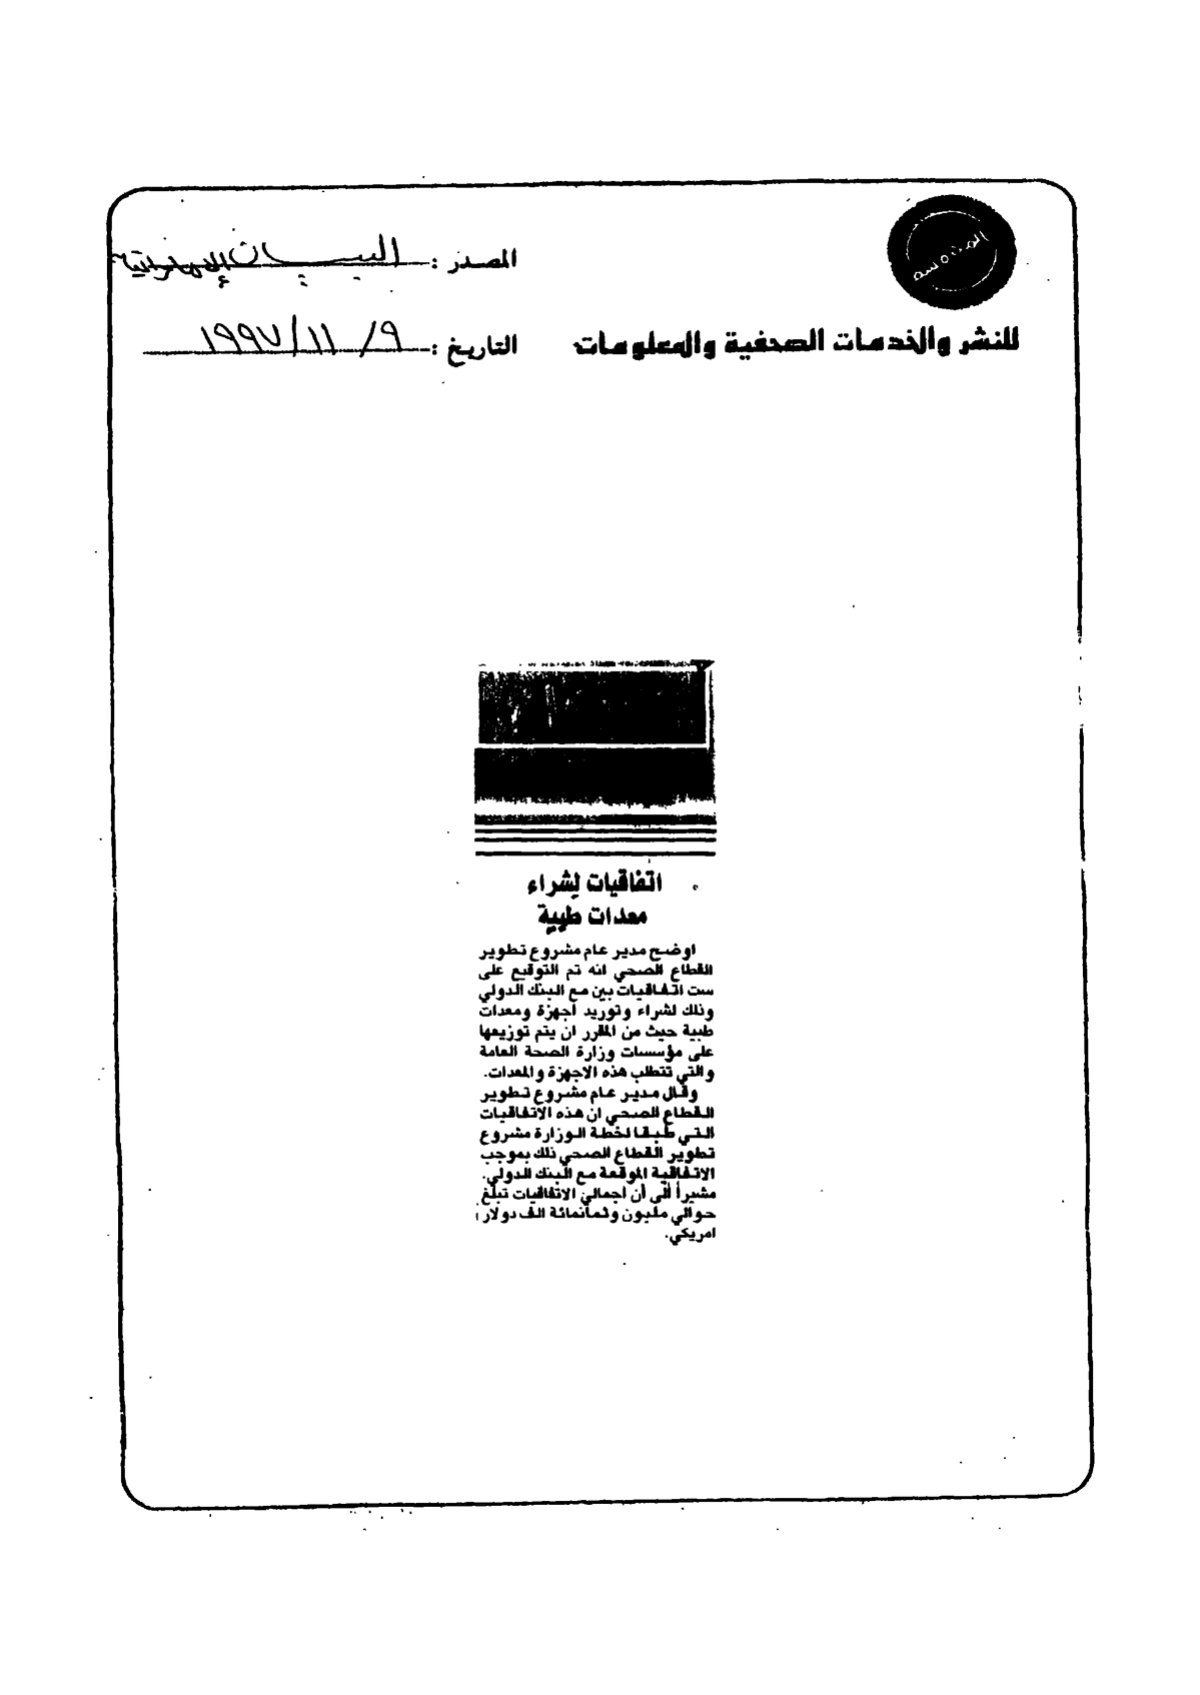 المصدر : البيان الإماراتية
للنشر والخدمات الصحفية والمعلومات
التاريخ : ٩/ ١١/ ١٩٩٧
اتفاقيات لشراء
معدات طبية
اوضح مدير عام مشروع تطوير
القطاع الصحي انه تم التوقيع على
ست اتفاقيات بين مع البنك الدولي
وذلك لشراء وتوريد اجهزة ومعدات
طبية حيث من المقرر ان يتم توزيعها
على مؤسسات وزارة الصحة العامة
والتي تتطلب هذه الاجهزة والمعدات.
وقال مدير عام مشروع تطوير
القطاع الصحي ان هذه الاتفاقيات
التي طبقا لخطة الوزارة مشروع
تطوير القطاع الصحي ذلك بموجب
الاتفاقية الموقعة مع البنك الدولي.
مشيراً الى أن اجمالي الاتفاقيات تبلغ
حوالي مليون وثمانمائة الف دولار
امريكي.